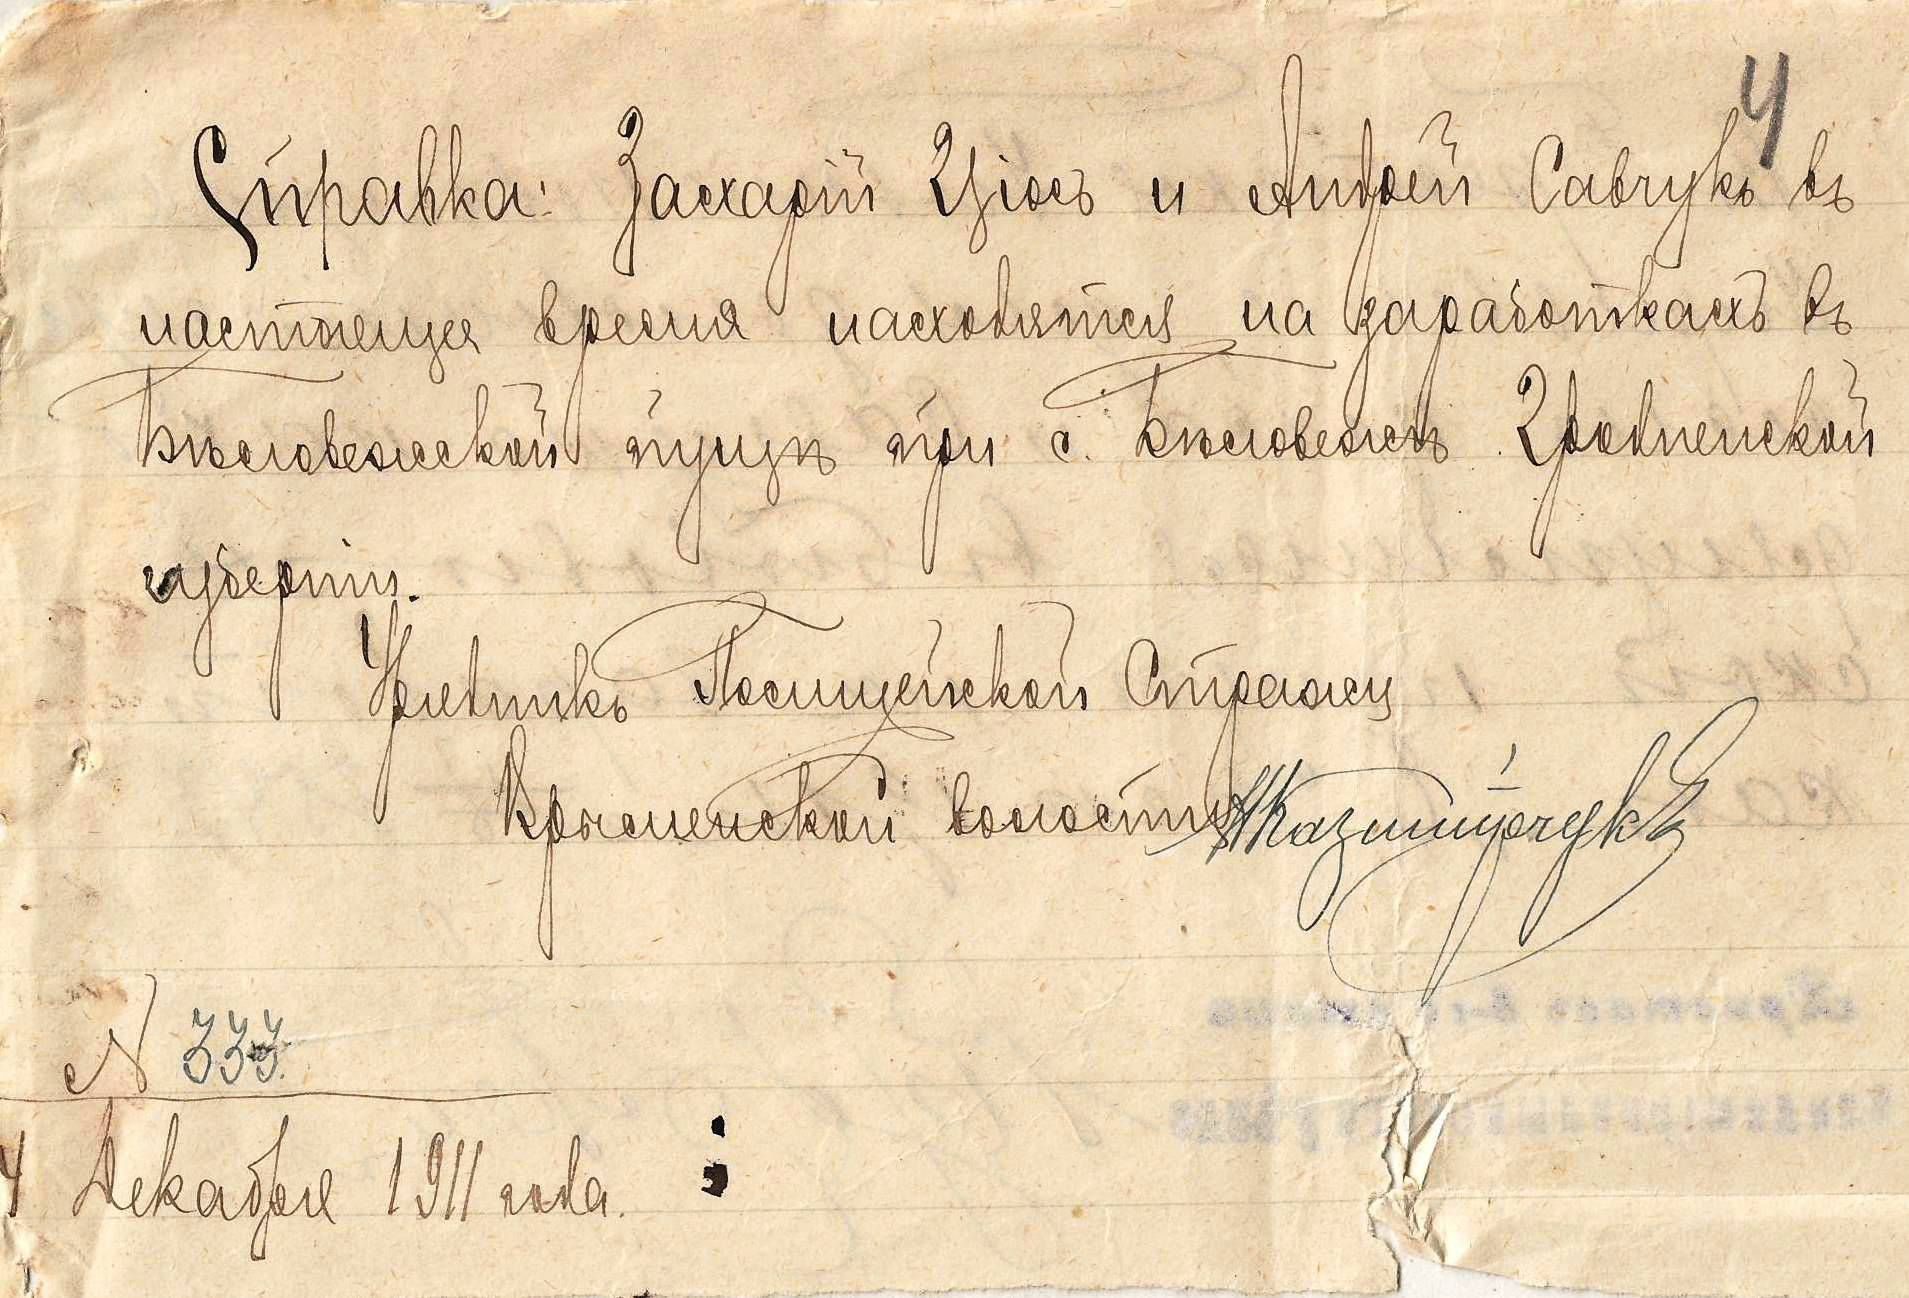 4
Справка: Захарій Цюсъ и Андрей Савчукъ въ
настоящее время находятся на заработкахъ въ
Бѣловежской пущѣ при с. Бѣловежѣ Гродненской
губерніи.
Урядникъ Полицейской Стражи
волости Казимірчукъ
N 333.
4 Декабря 1911 года.